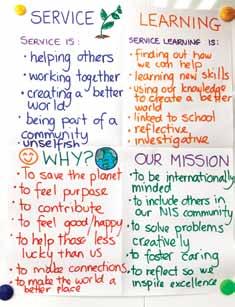 SERVICE
SERVICE IS:
• helping others
• working together
• creating a better
world
• being part of a
community
unselfish
LEARNING
SERVICE LEARNING IS:
• finding out how
we can help
• learning new skills
• using our knowledge
to create a better
world
• linked to school
• reflective
investigative
WHY?
• To save the planet
• to feel purpose
• to contribute
• to feel good/happy
• to help those less
lucky than us
• to make connections
• to make the world a
better place
OUR MISSION
• to be internationally
minded
• to include others in
our NIS community
• to solve problems
creatively
• to foster caring
• to reflect so we
inspire excellence